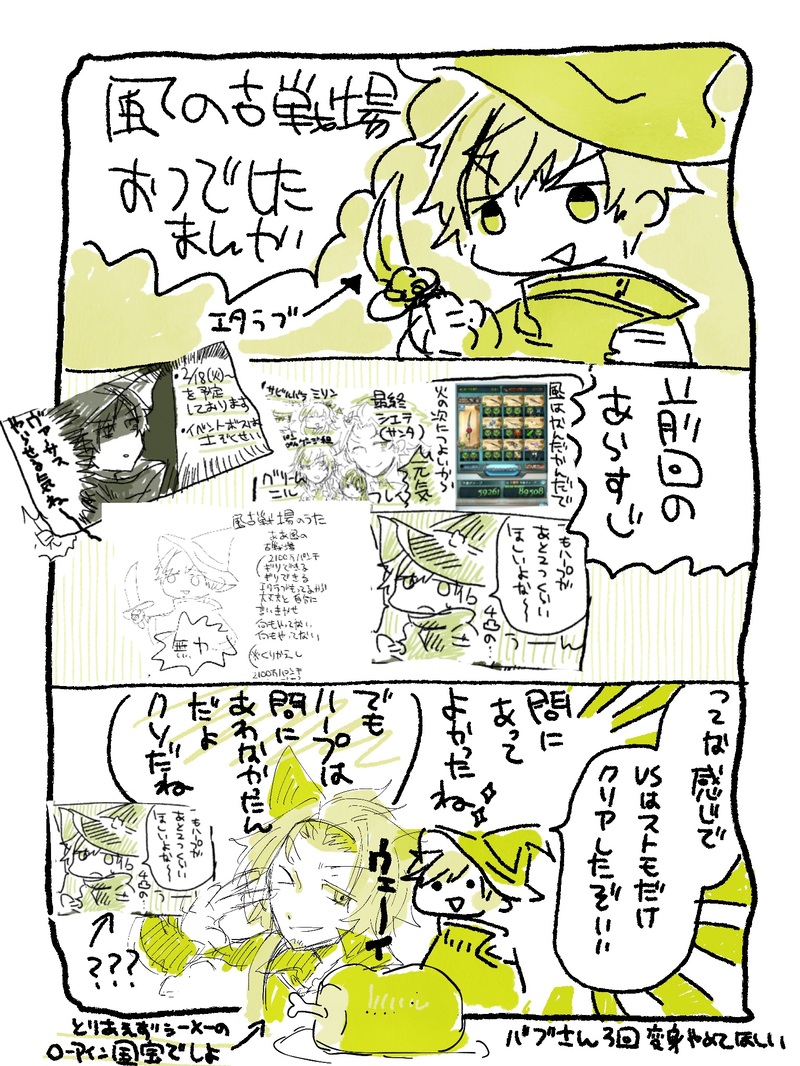 風の古戦場
おつでした
まんが
エタラブ
前回の
あらすじ
風はかんだかんだで
火の次につよいから
59261
89508
最終
シエテ
(サンタ)
元気
グリーム
ニル
・2/18(火)〜
を予定
しております
・イベントボスは
もハプが
あと2つくらい
ほしいよな〜
4凸の…
うーーん
風古戦場のうた
ああ風の
古戦場
2100万パンチ
ギリできる
ギリできる
エタラブもってるから
大丈夫と自分に
言いきかせ
何もやってない
何もやってない
※くりかえし
2100万パンチ
無力…
ってな感じで
VSはストモだけ
クリアしたぞい!!
間に
あって
よかったね
でも
ハープは
間に
あわなかたん
だよ
クソだね
ウェーイ
もハプが
あと2つくらい
ほしいよな〜
4凸の…
うーー
???
とりあえずラーメーの
ローアイン国宝でしょ
バブさん3回変身やめてほしい